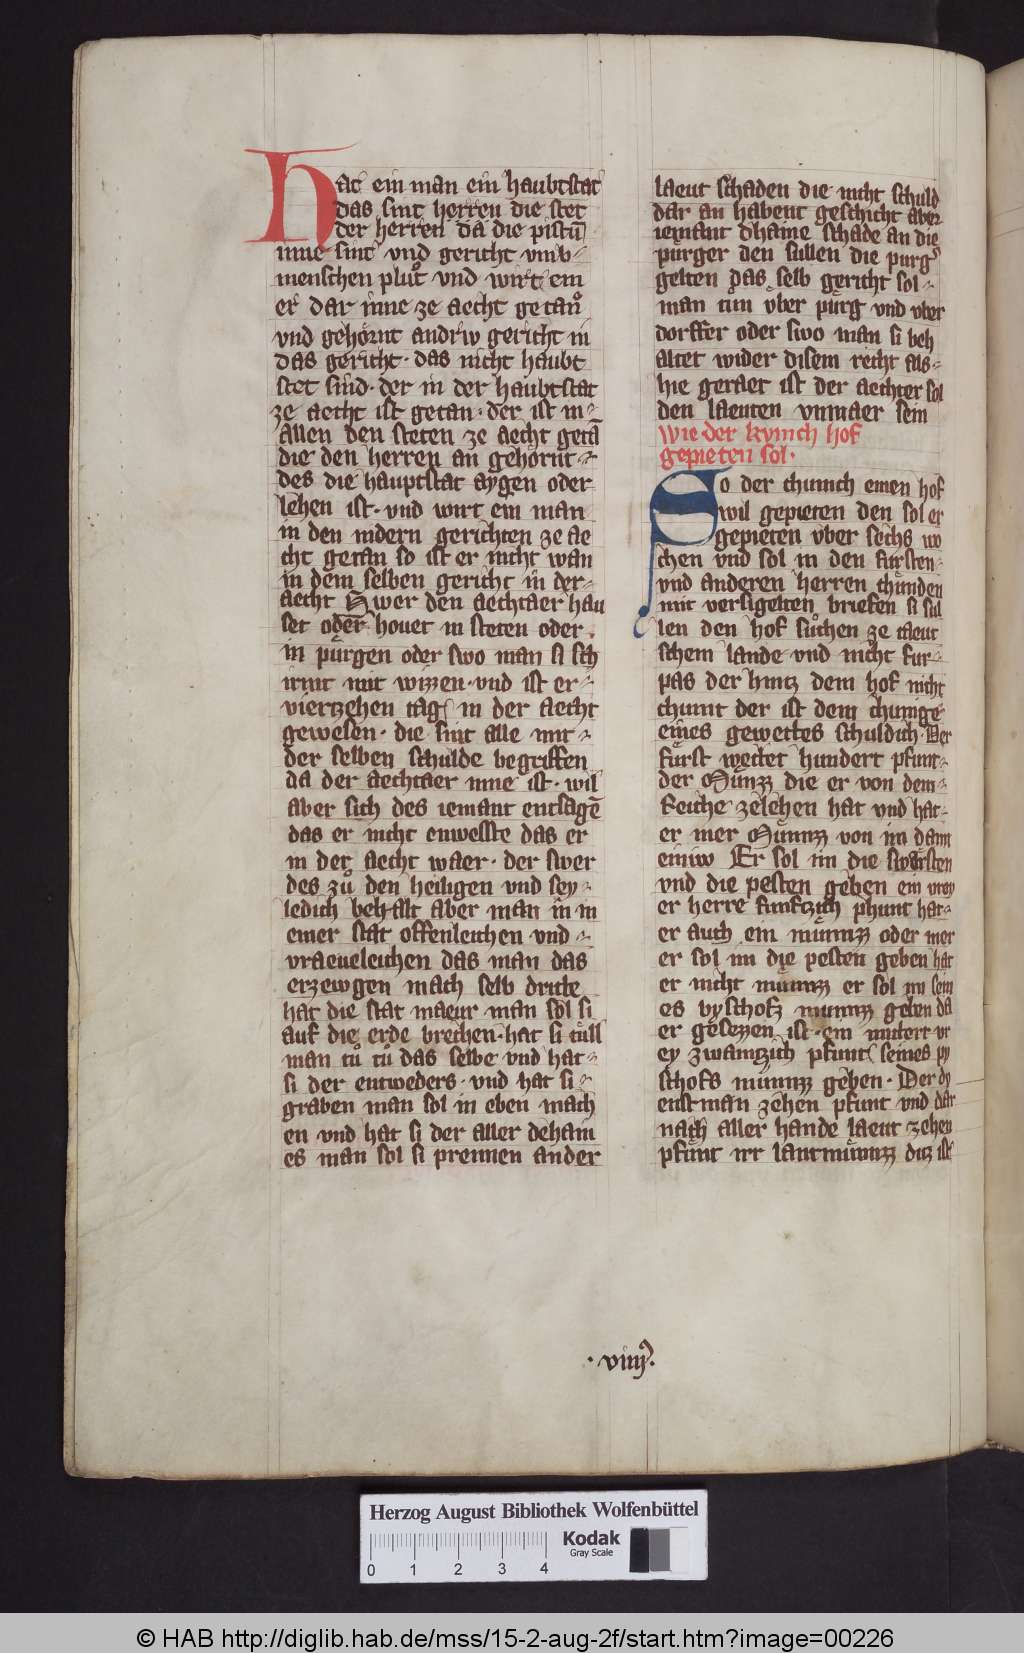 Hat ein man ein haubtstat
das sint herren die stet
der herren da die pistū
inne sint vnd gericht vmb
menschen plůt vnd wirt em
er dar inne ze aecht getan
vnd gehornt andriv gericht in
das gericht · das nicht haubt
stet sind · der in der haubtstat
ze aecht ist getan · der ist in
allen den steten ze aecht getā
die den herren an gehornt
des die hauptstat aygen oder
lehen ist · vnd wirt ein man
in den nidern gerichten ze ae
cht getan so ist er nicht wan
in dem selben gericht in der
aecht Swer den aechtaer hau
set oder houet in steten oder
in pürgen oder swo man si sch
irmt mit wizzen · vnd ist er
vierzehen tag in der aecht
gewesen · die sint alle mit
der selben schulde begriffen
da der aechtaer inne ist · wil
aber sich des iemant entsagē
das er nicht enwesste das er
in der aecht waer · der swer
des zů den heiligen vnd sey
ledich behalt aber man in in
einer stat offenleichen vnd
vraeueleichen das man das
erzewgen mach selb dritte
hat die stat maeur man sol si
auf die erde brechen · hat si tüll
man tů tů das selbe · vnd hat
si der entweders · vnd hat si
graben man sol in eben mach
en vnd hat si der aller dehain
es man sol si prennen ander
laeut schaden die nicht schuld
dar an habent geschicht aber
iemant dhaine schade an die
purger den sullen die purg
gelten das selb gericht sol
man tůn vber pürg vnd vber
dorffer oder swo man si beh
altet wider disem recht als
hie geraet ist der aechter sol
den laeuten vnmaer sein
wie der kvnich hof
gepieten sol ·
So der chunich einen hof
wil gepieten den sol er
gepieten vber sechs wo
chen vnd sol in den fursten
vnd anderen herren chünden
mit versigelten briefen si sul
len den hof sůchen ze taeut
schem lande vnd nicht fur
pas der hintz dem hof nicht
chumt der ist dem chunige
eines gewettes schuldich · Der
fürst wettet hundert pfunt
der Münzz die er von dem
Reiche zelehen hat vnd hat
er mer Münzz von im dann
einiw Er sol im die swersten
vnd die pesten geben ein vrey
er herre funfczich phunt hat
er auch ein münzz oder mer
er sol im die pesten geben hat
er nicht münzz er sol im sein
es byschofs munzz geben da
er gesezzen ist · ein mitterr vr
ey zwaintzich pfunt seines py
schofs münnzz geben · Der dy
enstman zehen pfunt vnd dar
nach aller hande laeut zehen
pfunt irr lantmünnzz ditz ist
· viiij ·
Herzog August Bibliothek Wolfenbüttel
0 1 2 3 4
Kodak
Gray Scale
© HAB http://diglib.hab.de/mss/15-2-aug-2f/start.htm?image=00226